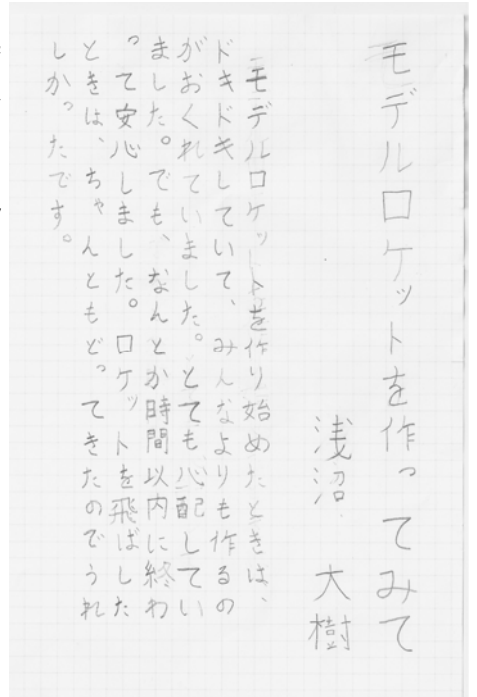 モデルロケットを作ってみて
浅沼 大樹
モデルロケットを作り始めたときは、
ドキドキしていて、みんなよりも作るの
がおくれていました。とても心配してい
ました。でも、なんとか時間以内に終わ
って安心しました。ロケットを飛ばした
ときは、ちゃんともどってきたのでうれ
しかったです。